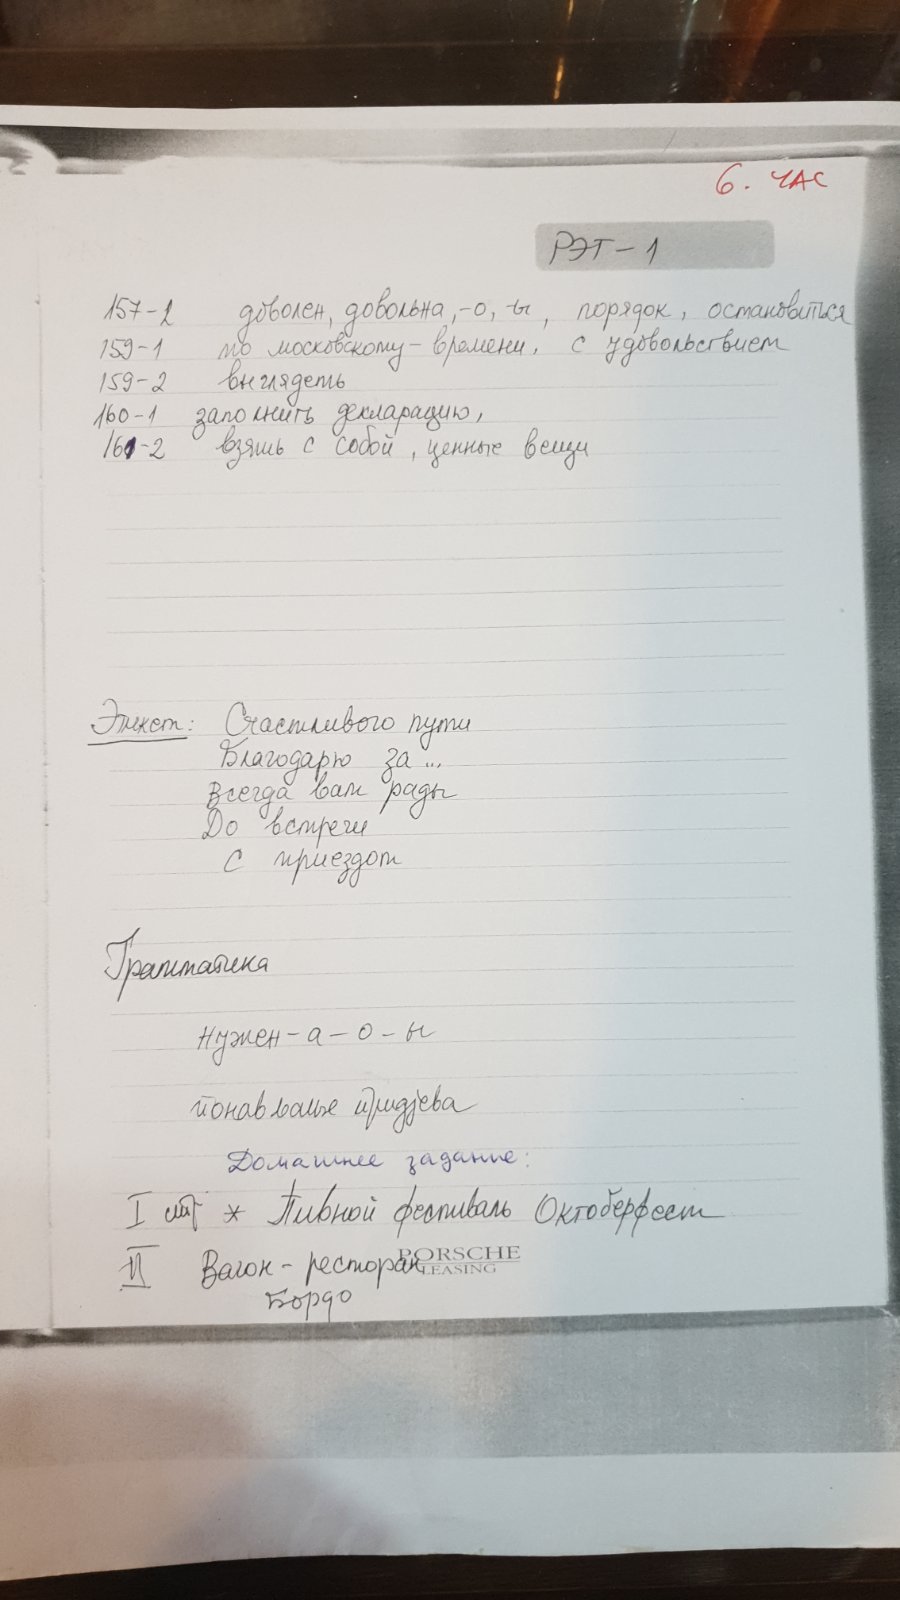 6. ЧАС
РЭТ-1
157-2 доволен, довольна, -о, -ы, порядок, остановиться
159-1 по московскому-времени, с удовольствием
159-2 выглядеть
160-1 заполнить декларацию,
161-2 взять с собой, ценные вещи
Этикет: Счастливого пути
Благодарю за ...
Всегда вам рады
До встречи
С приездом
Грамматика
Нужен-а-о-ы
понављање придјева
Домашнее задание:
I * Пивной фестиваль Октоберфест
II Вагон-ресторан
PORSCHE
LEASING
Бордо